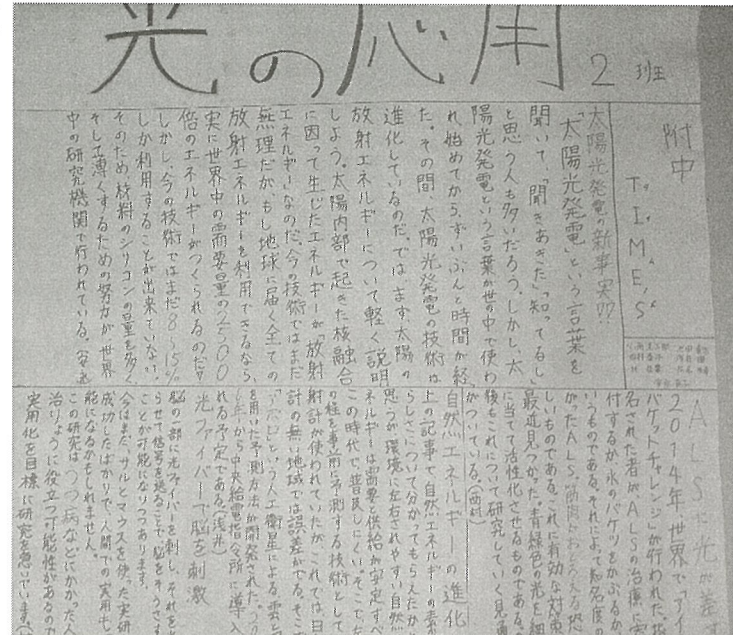 光の応用
2班
附中
T.I.M.E.S
太陽光発電の新事実!?
「太陽光発電」という言葉を
聞いて、「聞きあきた」「知ってるし」
と思う人も多いだろう。しかし、太
陽光発電という言葉が世の中で使わ
れ始めてから、ずいぶんと時間が経
た。その間、太陽光発電の技術は
進化しているのだ。では、まず太陽の
放射エネルギーについて軽く説明
しよう。太陽内部で起きた核融合
に因って生じたエネルギーが放射
エネルギーなのだ。今の技術ではまだ
無理だが、もし地球に届く全ての
放射エネルギーを利用できるなら、
実に世界中の需要量の2500
倍のエネルギーがつくられるのだ!!
しかし、今の技術ではまだ8~15%
しか利用することが出来ていない。
そのため、材料のシリコンの量を多く
そして薄くするための努力が世界
中の研究機関で行われている。
ALS 光が差
2014年世界で「アイ
バケットチャレンジ」が行われた。指
名された者がALSの治療に寄
付するか氷のバケツをかぶるか
いうものである。それによって知名度
かったALS。
しいものである。これに有効な対策
最近見つかった。青緑色の光を細
に当てて活性化させるものである。
後もこれについて研究していく見
がついている。(西村)
自然エネルギーの進化
上の記事で自然エネルギーの素
らしさについて分かってもらえたか
思うが環境に左右されやすい自然
ネルギーは需要と供給が安定すべ
この時代で普及しにくい。そこで、
の程を事前に予測する技術として
射計が使われていたが、これでは日
計の無い地域では誤差がでる。そこで
という人工衛星による雲
を用いた予測方法が開発された。
年から中央給電指令所に導入
れる予定である。(浅井)
光ファイバーで脳を刺激
脳の一部に光ファイバーを刺し、それを
らせて信号を送ることで脳をそうさす
ことが可能になりつつあります。
今はまだ、サルとマウスを使った実研
成功したばかりで、人間での実用も
能になるかもしれません。
この研究はうつ病などにかかった人
治りょうに役立つ可能性があるので
実用化を目標に研究を急いでいます。